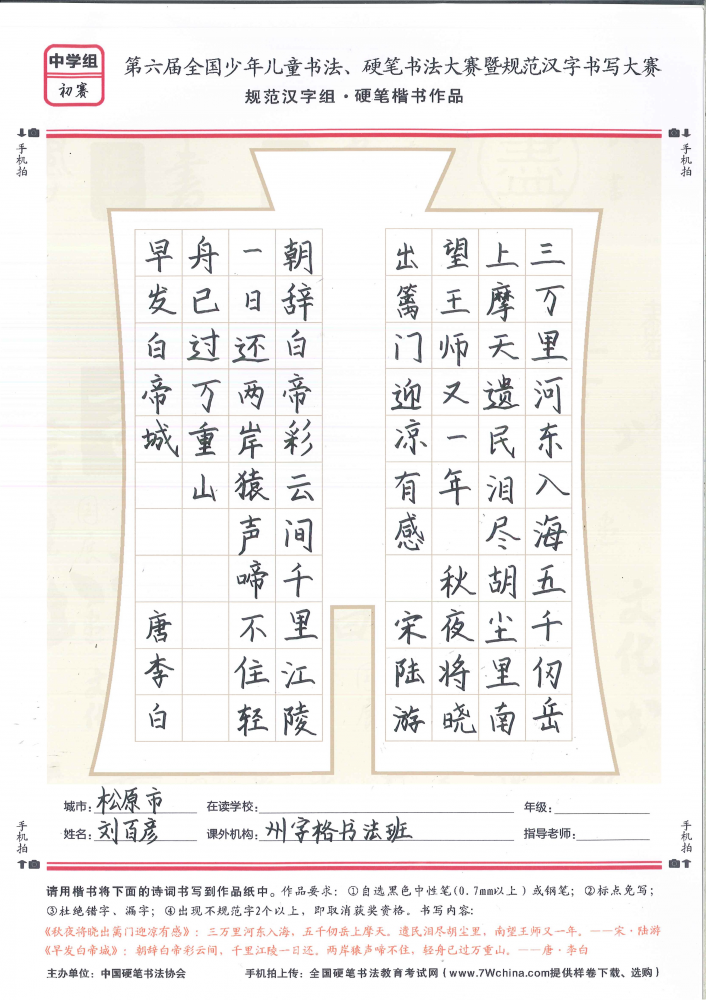 中学组
初赛
第六届全国少年儿童书法、硬笔书法大赛暨规范汉字书写大赛
规范汉字组·硬笔楷书作品
手机拍
手机拍
三万里河东入海五千仞岳
上摩天遗民泪尽胡尘里南
望王师又一年 秋夜将晓
出篱门迎凉有感 宋陆游
朝辞白帝彩云间千里江陵
一日还两岸猿声啼不住轻
舟已过万重山
早发白帝城 唐李白
城市：松原市 在读学校： 年级：
姓名：刘百彦 课外机构：州字格书法班 指导老师：
手机拍
手机拍
请用楷书将下面的诗词书写到作品纸中。作品要求：①自选黑色中性笔(0.7mm以上）或钢笔；②标点免写；
③杜绝错字、漏字；④出现不规范字2个以上，即取消获奖资格。书写内容：
《秋夜将晓出篱门迎凉有感》：三万里河东入海，五千仞岳上摩天。遗民泪尽胡尘里，南望王师又一年。——宋·陆游
《早发白帝城》：朝辞白帝彩云间，千里江陵一日还。两岸猿声啼不住，轻舟已过万重山。——唐·李白
主办单位：中国硬笔书法协会 手机拍上传：全国硬笔书法教育考试网（www.7Wchina.com提供样卷下载、选购）